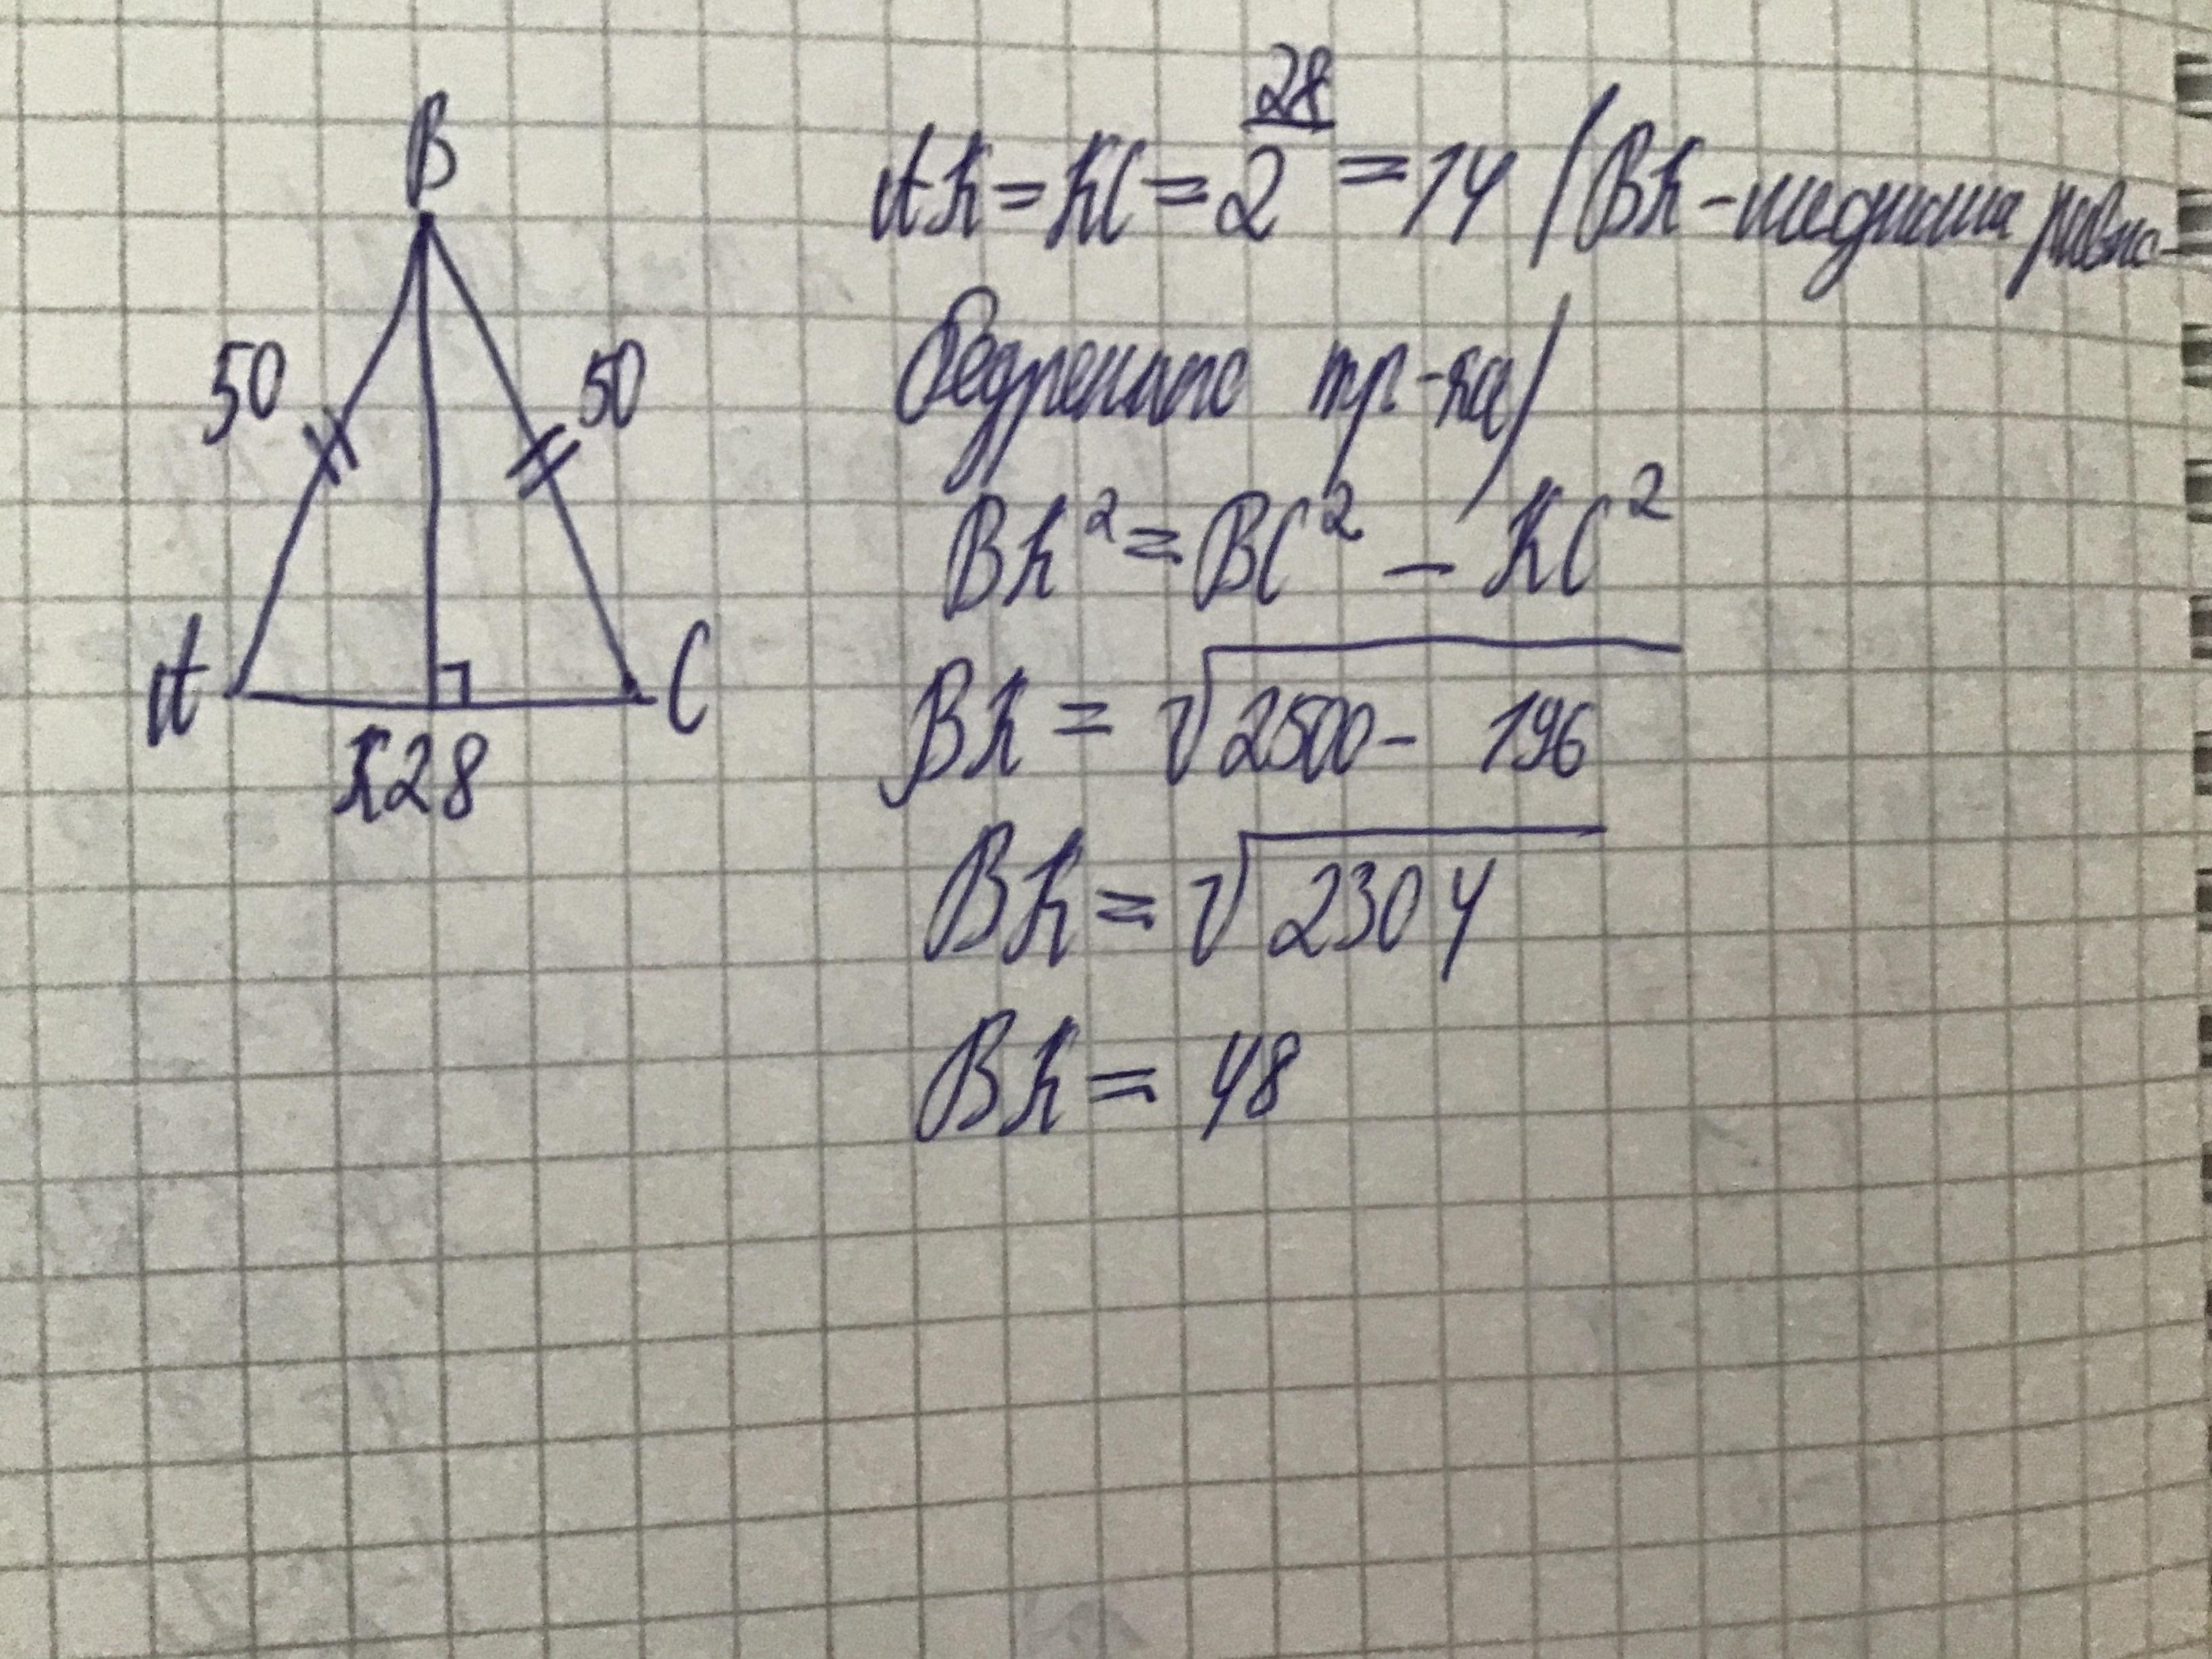 B
50
50
A
C
K 28
AK = KC = 28/2 = 14 / BK - медиана равно-
бедренного тр-ка /
BK² = BC² - KC²
BK = √2500 - 196
BK = √2304
BK = 48